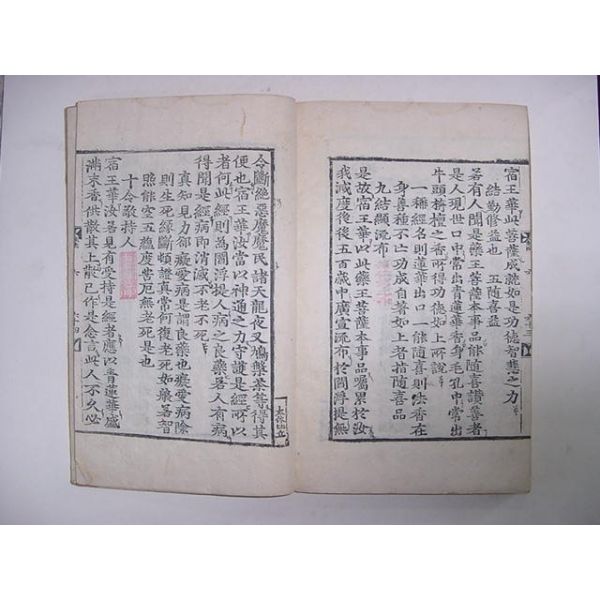 宿王華此菩薩成就如是功德智慧之力
結勸脩益也 五隨喜益
若有人聞是藥王菩薩本事品能隨喜讚善者
是人現世口中常出青蓮華香身毛孔中常出
牛頭栴檀之香所得功德如上所說
一種經名則蓮華出口一能隨喜則法香在
身善種不亡功成自著如上者指隨喜品
九結顯流布
是故宿王華以此藥王菩薩本事品囑累於汝
我滅度後後五百歲中廣宣流布於閻浮提無
令斷絕惡魔魔民諸天龍夜叉鳩槃茶等得其
便也宿王華汝當以神通之力守護是經所以
者何此經則為閻浮提人病之良藥若人有病
得聞是經病即消滅不老不死
真知見力郤癡愛病是謂良藥也癡愛病除
則生死緣斷頓證真常何復老死如般若智
照能空五蘊度苦厄無老死是也
十令敬持人
宿王華汝若見有受持是經者應以青蓮華盛
滿末香供散其上散已作是念言此人不久必